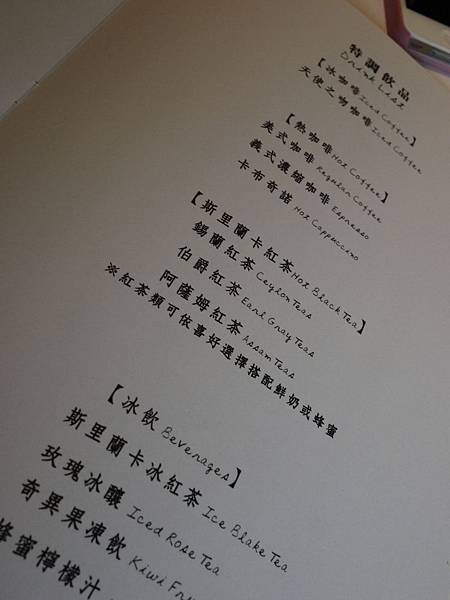 特調飲品
Drink List
【冰咖啡Iced Coffee】
天使之吻咖啡Iced Coffee
【熱咖啡Hot Coffee】
美式咖啡 Regular Coffee
義式濃縮咖啡 Espresso
卡布奇諾 Hot Cappuccino
【斯里蘭卡紅茶Hot Black Tea】
錫蘭紅茶 Ceylon Teas
伯爵紅茶 Earl Gray Teas
阿薩姆紅茶 Assam Teas
※紅茶類可依喜好選擇搭配鮮奶或蜂蜜
【冰飲 Beverages】
斯里蘭卡冰紅茶 Ice Blake Tea
玫瑰冰釀 Iced Rose Tea
奇異果凍飲 Kiwi
蜂蜜檸檬汁